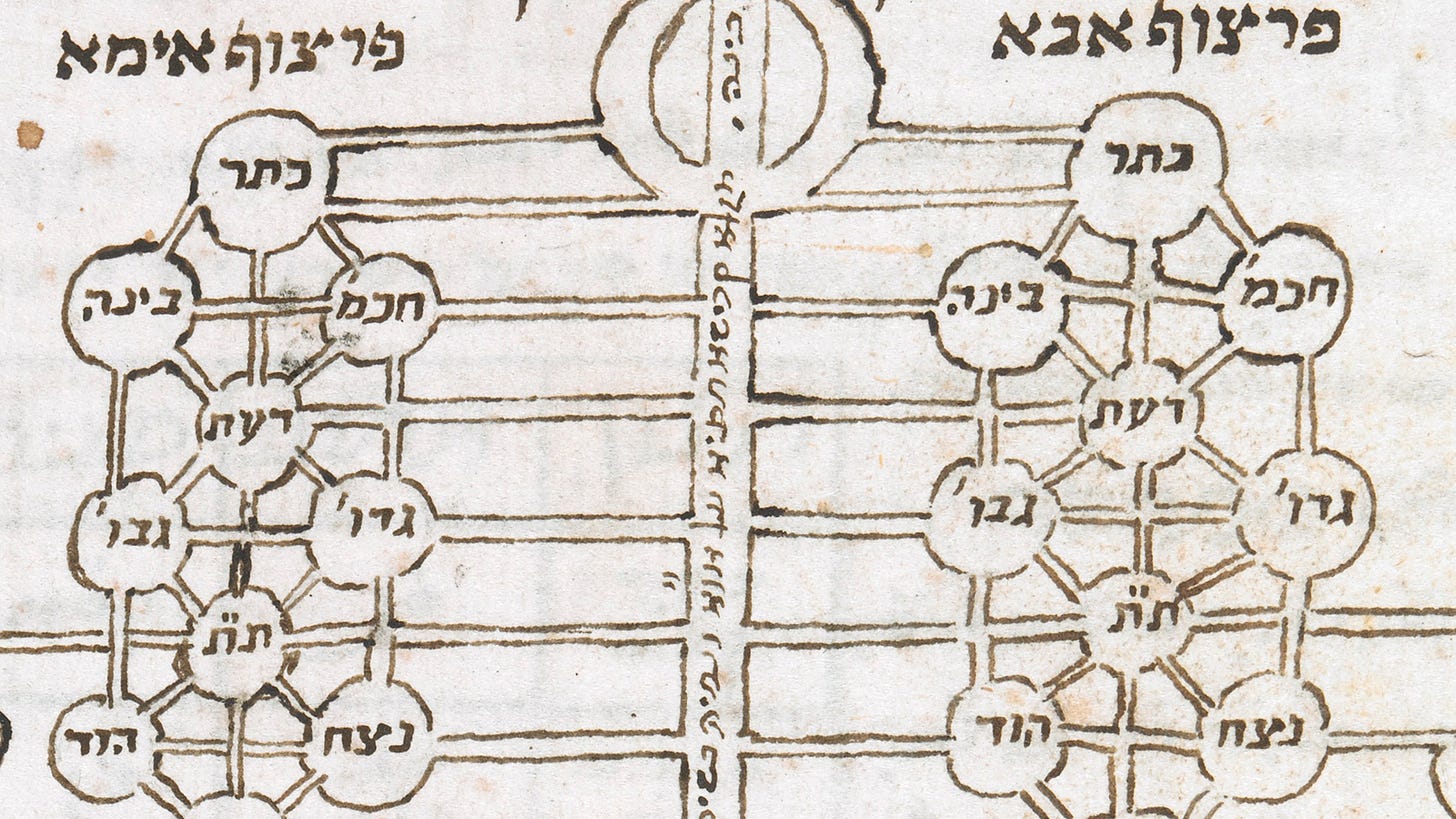 פרצוף אבא
פרצוף אימא
בינה
כתר
כתר
חכמ'
בינה
חכמ'
בינה
דעת
דעת
גדו'
גבו'
גדו'
גבו'
ת"ת
ת"ת
נצח
הוד
נצח
הוד